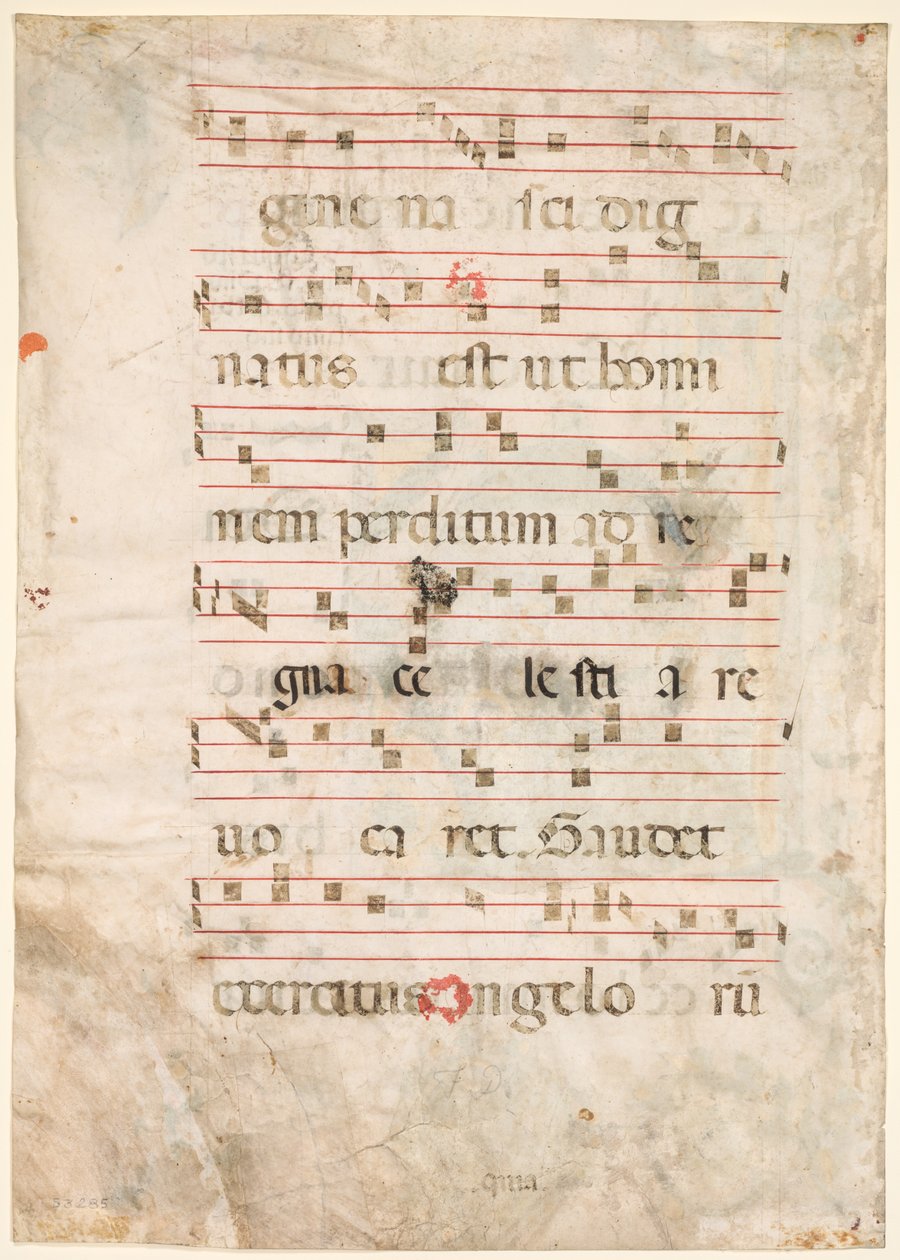 gine na sci dig
natus est ut homi
nem perditum ad re
gna ce le sti a re
uo ca ret. Gaudet
exercitus angelo rū
F D
quia.
53285